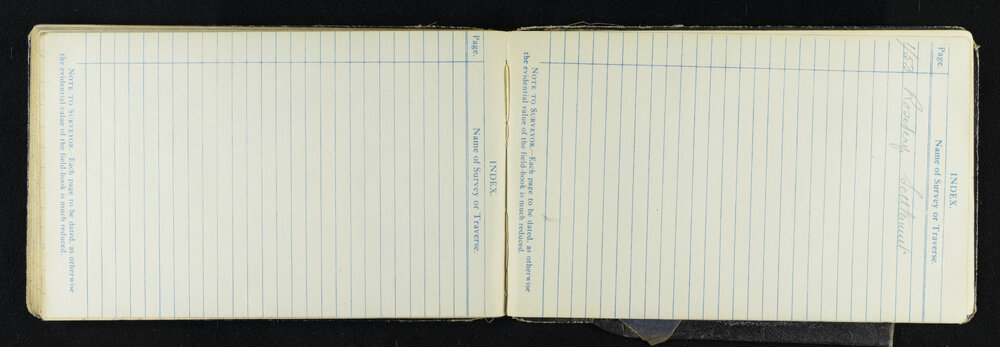 INDEX.
Page. Name of Survey or Traverse.
NOTE TO SURVEYOR.—Each page to be dated, as otherwise
the evidential value of the field-book is much reduced.
INDEX.
Page. Name of Survey or Traverse.
Rosebery Settlement
NOTE TO SURVEYOR.—Each page to be dated, as otherwise
the evidential value of the field-book is much reduced.